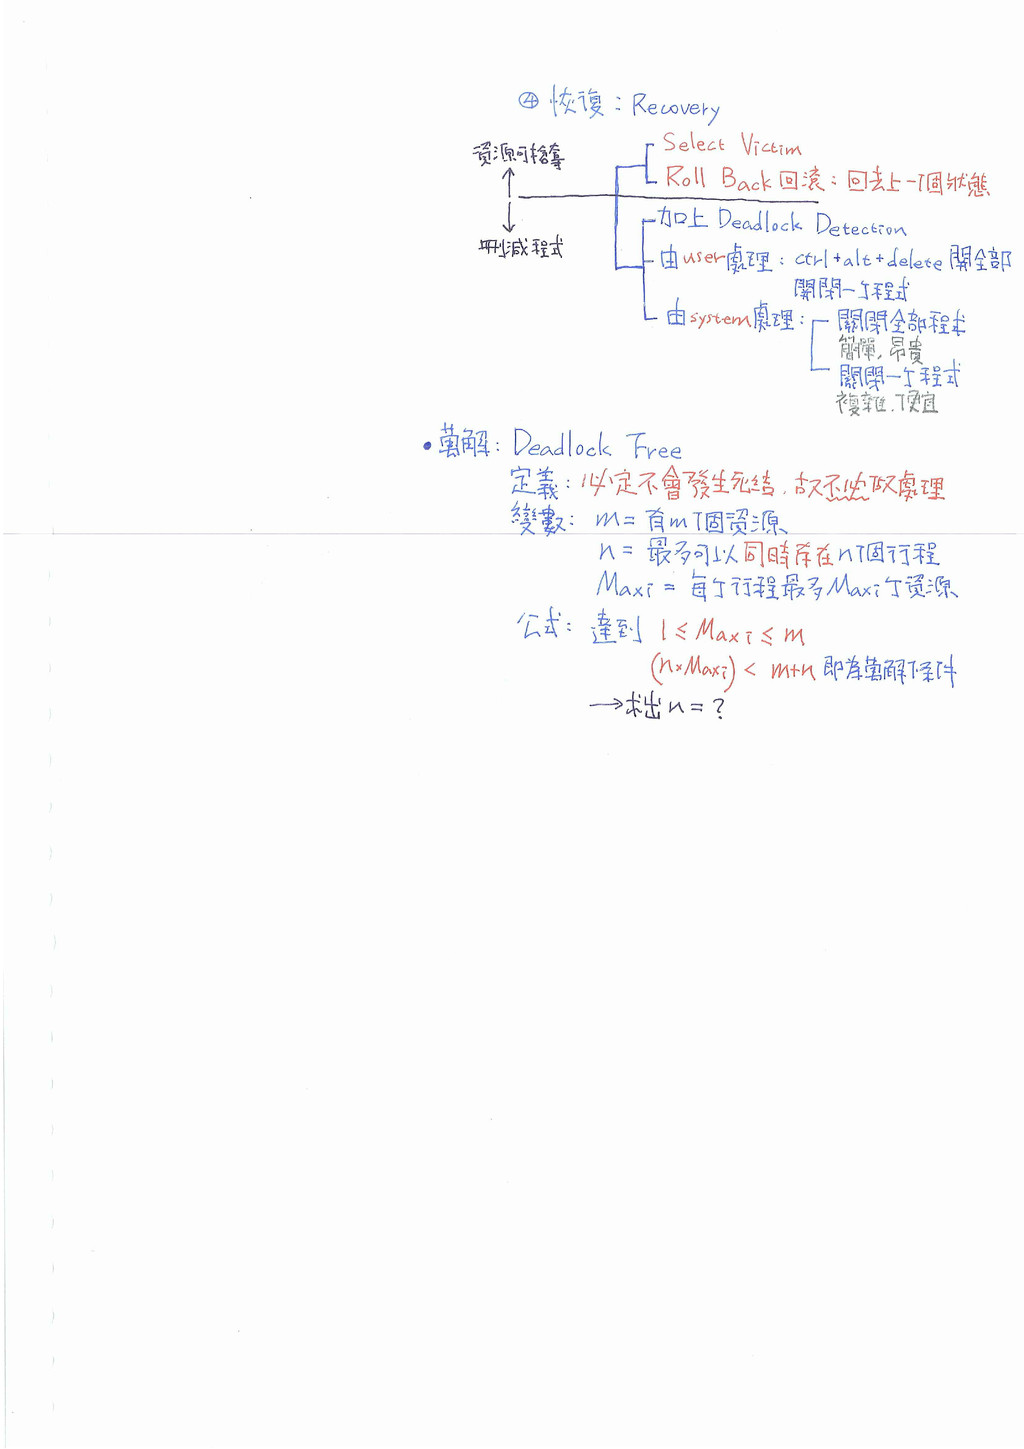 ④ 恢復：Recovery
資源可搶奪
Select Victim
Roll Back 回滾：回去上一個狀態
刪減程式
加上 Deadlock Detection
由user處理：ctrl+alt+delete 開全部
關閉一个程式
由system處理：關閉全部程式
簡單，昂貴
關閉一个程式
複雜，便宜
• 萬解：Deadlock Free
定義：必定不會發生死結，故不必做處理
變數：m = 有m個資源
n = 最多可以同時存在n個行程
Maxi = 每个行程最多Maxi个資源
公式：達到 1 ≤ Maxi ≤ m
(n×Maxi) < m+n 即為萬解條件
→求出 n = ?